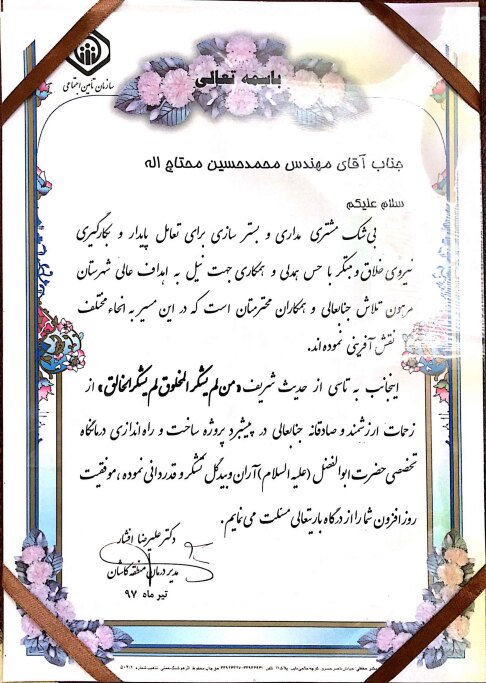 باسمه تعالی
سازمان تأمین اجتماعی
جناب آقای مهندس محمدحسین محتاج اله
سلام علیکم
بی شک مشتری مداری و بستر سازی برای تعامل پایدار و بکارگیری
نیروی خلاق و مبتکر با حس همدلی و همکاری جهت نیل به اهداف عالی شهرستان
مرهون تلاش جنابعالی و همکاران محترمتان است که در این مسیر به انحاء مختلف
نقش آفرینی نموده اند.
اینجانب به تاسی از حدیث شریف «من لم یشکر المخلوق لم یشکر الخالق» از
زحمات ارزشمند و صادقانه جنابعالی در پیشبرد پروژه ساخت و راه اندازی درمانگاه
تخصصی حضرت ابوالفضل (علیه السلام) آران و بیدگل تشکر و قدردانی نموده ، موفقیت
روز افزون شما را از درگاه باریتعالی مسئلت می نمایم.
دکتر علیرضا افشار
مدیر درمان منطقه کاشان
تیر ماه ۹۷